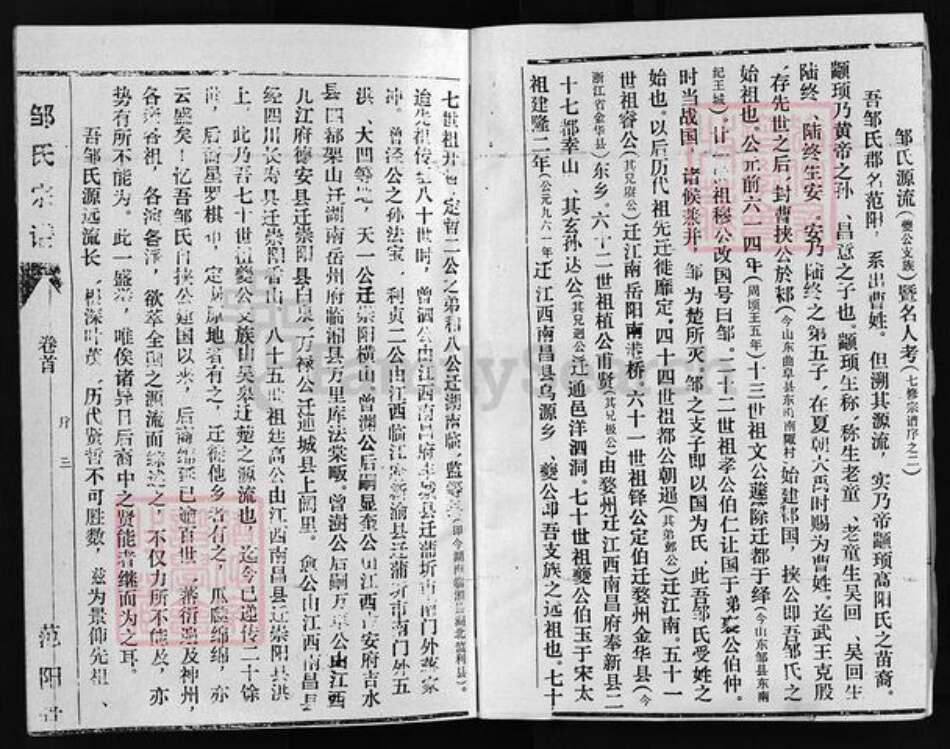 邹氏源流(夔公支族)暨名人考(七修宗谱序之二)
吾邹氏郡名范阳,系出曹姓。但溯其源流,实乃帝颛顼高阳氏之苗裔。
颛顼乃黄帝之孙、昌意之子也。颛顼生称,称生老童、老童生吴回、吴回生
陆终、陆终生安。安乃陆终之第五子,在夏朝大禹时赐为曹姓。迄武王克殷
,存先世之后,封曹挟公於邾(今山东曲阜县东南南陬村)始建邾国,挟公即吾邹氏之
始祖也,公元前六一四年(周顷王五年)十三世祖文公蘧蒢迁都于绎(今山东邹县东南
纪王城)。计 世祖穆公改国号曰邹。二十二世祖孝公伯仁让国于弟哀公伯仲。
时当战国,诸候兼并,邹为楚所灭,邹之支子即以国为氏,此吾邹氏受姓之
始也。以后历代祖先迁徙靡定。四十四世祖都公朝遍(其弟邺公)迁江南。五十一
世祖睿公(其兄尉公)迁江南岳阳南港桥,六十一世祖铎公定伯迁婺州金华县(今
浙江省金华县)东乡。六十二世祖植公甫贤(其兄极公)由婺州迁江西南昌府奉新县二
十七都奉山、其玄孙达公(其兄迥公)迁通邑洋泗洞。七十世祖夔公伯玉于宋太
祖建隆二年(公元九六一年)迁江西南昌县乌源乡、夔公即吾支族之远祖也。七十
七世祖 定暂二公之弟和八公迁湖南临、监 (即今湖南临湘县湖北监利县)。
迨先祖传至八十世时,曾泗公由江西南昌府 县迁蒲圻南门外 家
冲。曾泾公之孙法宝、利贞二公由江西临江府新渝县迁蒲圻市南门外五
洪、大凹等地,天一公迁崇阳横山,曾渊公后嗣显奎公由江西吉安府吉水
县四都架山迁湖南岳州府临湘县万里库法棠畈。曾澍公后嗣万 公由江西
九江府德安县迁崇阳县白泉,万禄公迁通城县上阔里。愈公由江西南昌县
经四川长寿县迁崇阳香山。八十五世祖廷高公由江西南昌县迁崇阳县洪
上,此乃吾七十世祖夔公支族由吴皋迁楚之源流也,迄今已递传二十馀
世,后裔星罗棋布,定居原地者有之,迁徙他乡者有之,瓜瓞绵绵,亦
云盛矣!忆吾邹氏自挟公建国以来,后裔绵延已逾百世,蕃衍遍及神州,
各宗各祖,各演各泽,欲萃全国之源流而综述之,不仅力所不能及,亦
势有所不能为。此一盛举,唯俟诸异日后裔中之贤能者继而为之耳。
吾邹氏源远流长,根深叶茂,历代贤哲不可胜数,兹为景仰先祖、
邹氏宗谱
卷首
序
三
范阳
FamilySearch